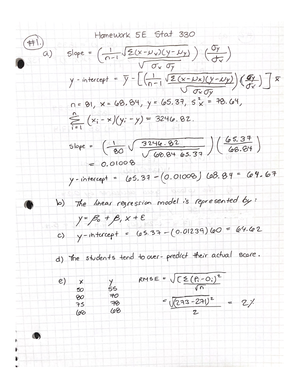 Homework 5E Stat 330
#1.
a) slope = (1/n-1 √Σ(x-μx)(y-μy) / √σx σy) (σy/σx)
y-intercept = ȳ - [(1/n-1 √Σ(x-μx)(y-μy) / √σx σy)(σy/σx)] x̄
n = 81, x = 68.84, y = 65.37, s²x = 78.64,
n Σ i=1 (xi - x)(yi - y) = 3246.82
slope = (1/80 √3246.82 / √68.84 65.37) (65.37/68.84)
= 0.01008
y-intercept = 65.37 - (0.01008) 68.84 = 64.67
b) The linear regression model is represented by:
y = β0 + β1 x + E
c) y-intercept = 65.37 - (0.01239) 60 = 64.62
d) The students tend to over-predict their actual score.
e) x y RMSE = √[Σ(Pi - Oi)² / √n
50 55
80 70
75 78
68 68
= √(273-271)² / 2 = 2%